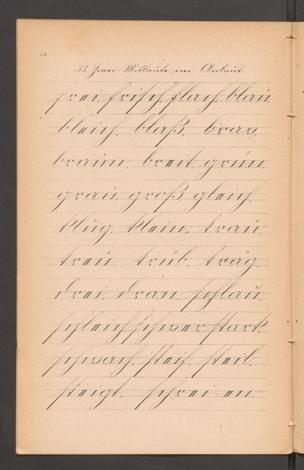 frei, frisch, flach, blau,
bleich, blaß, brav,
braun, breit, grün,
grau, groß, gleich,
klug, klein, trau,
treu, trüb, träg,
drei, dran, schlau,
schleich, schwer, stark,
schwach, steif, steil,
steigt, schrei-en.